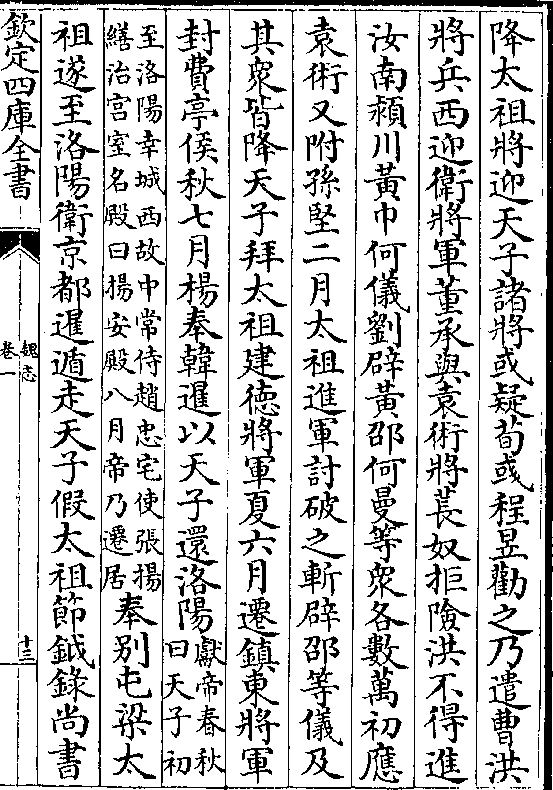 降太祖將迎天子諸將或疑荀彧程昱勸之乃遣曹洪
將兵西迎衛將軍董承與袁術將萇奴拒險洪不得進
汝南潁川黃巾何儀劉辟黃邵何曼等衆各數萬初應
袁術又附孫堅二月太祖進軍討破之斬辟邵等儀及
其衆皆降天子拜太祖建德將軍夏六月遷鎮東將軍
封費亭侯秋七月楊奉韓暹以天子還洛陽獻帝春秋
曰天子初
至洛陽幸城西故中常侍趙忠宅使張揚
繕治宮室名殿曰揚安殿八月帝乃遷居奉别屯梁太
祖遂至洛陽衛京都暹遁走天子假太祖節鉞錄尚書
欽定四庫全書
魏志
卷一
十三